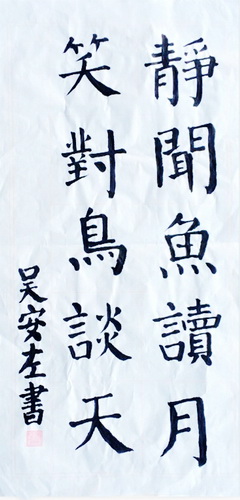 靜聞魚讀月
笑對鳥談天
吳安左書